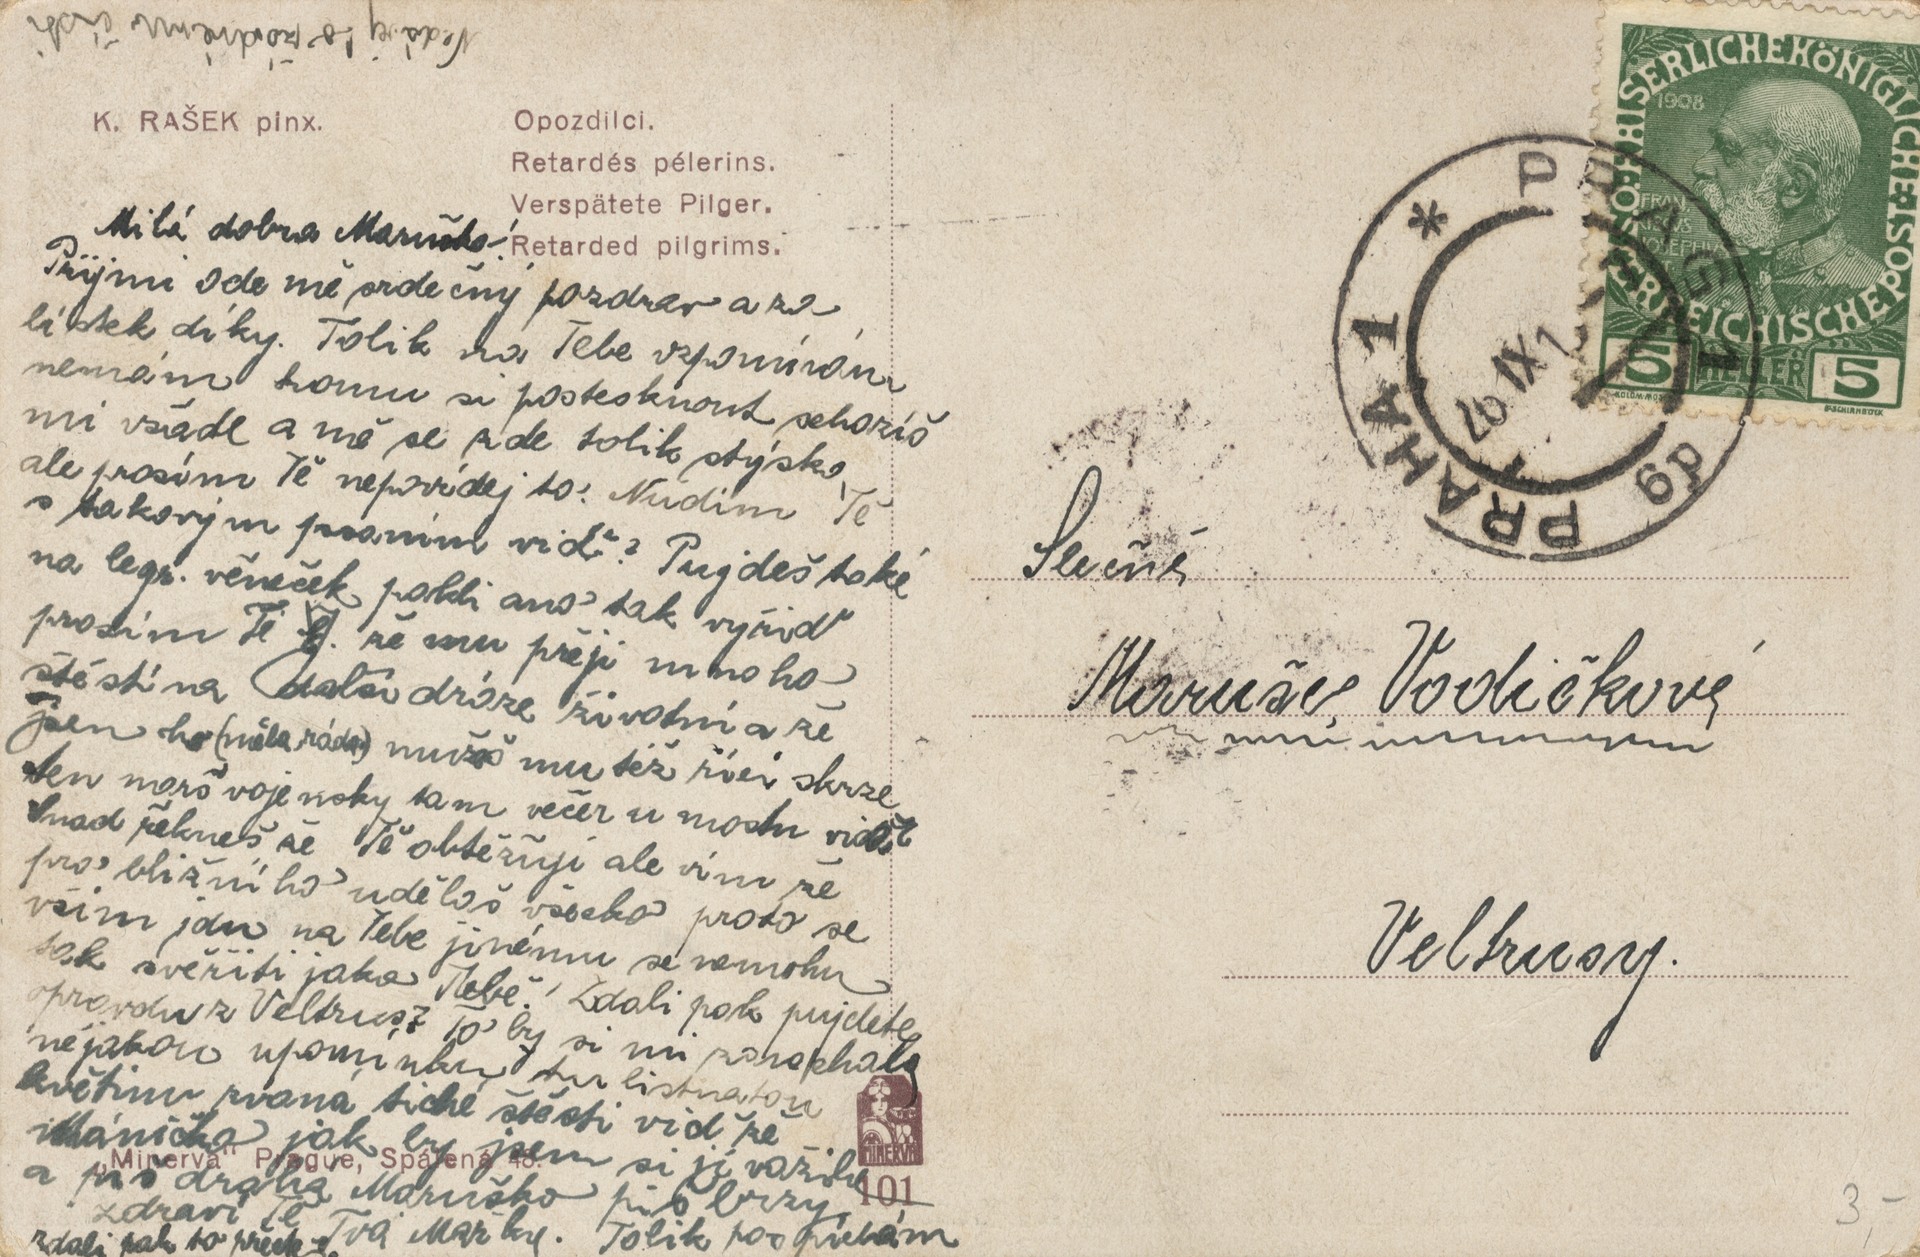 Nedávej to žádnému čísti
K. RAŠEK pinx.
Opozdilci.
Retardés pélerins.
Verspätete Pilger.
Retarded pilgrims.
Milá dobra Maruško!
Přijmi ode mě srdečný pozdrav a za
lístek díky. Tolik na Tebe vzpomínám
nemám komu si postesknout scházíš
mi všade a mě se zde tolik stýská,
ale prosím Tě nepovídej to! Nudím Tě
s takovým psaním viď? Pujdeš také
na legr. věneček pakli ano tak vyřiď
prosím Tě že mu přeji mnoho
štěstí na další dráze životní a že
jsem ho (měla ráda) mužeš mu též říci skrze
ten marš vojensky tam večer u mostu viď
Snad řekneš že Tě obtěžuji ale vím že
pro bližního uděláš všecko proto se
vším jdu na Tebe jinému se nemohu
tak svěřiti jako Tebě! Zdali pak pujdete
opravdu z Veltrus? To by si mi zanechala
nějakou upomínku, tu listnatou
květinu zvaná tiché štěstí viď že
Mánička jak by jsem si jí vážila
a piš drahá Maruško piš brzy,
zdraví Tě Tvá Mařka. Tolik pospíchám
zdali pak to přečteš
„Minerva" Prague, Spálená 48.
MINERVA
101
KAISERLICHE KÖNIGLICHE ÖSTERREICHISCHE POST
1908
FRANCISCUS JOSEPHUS I
5 HELLER 5
PRAHA 1 * PRAG 1
6p
Slečně
Marušce Vodičkové
Veltrusy.
3,-